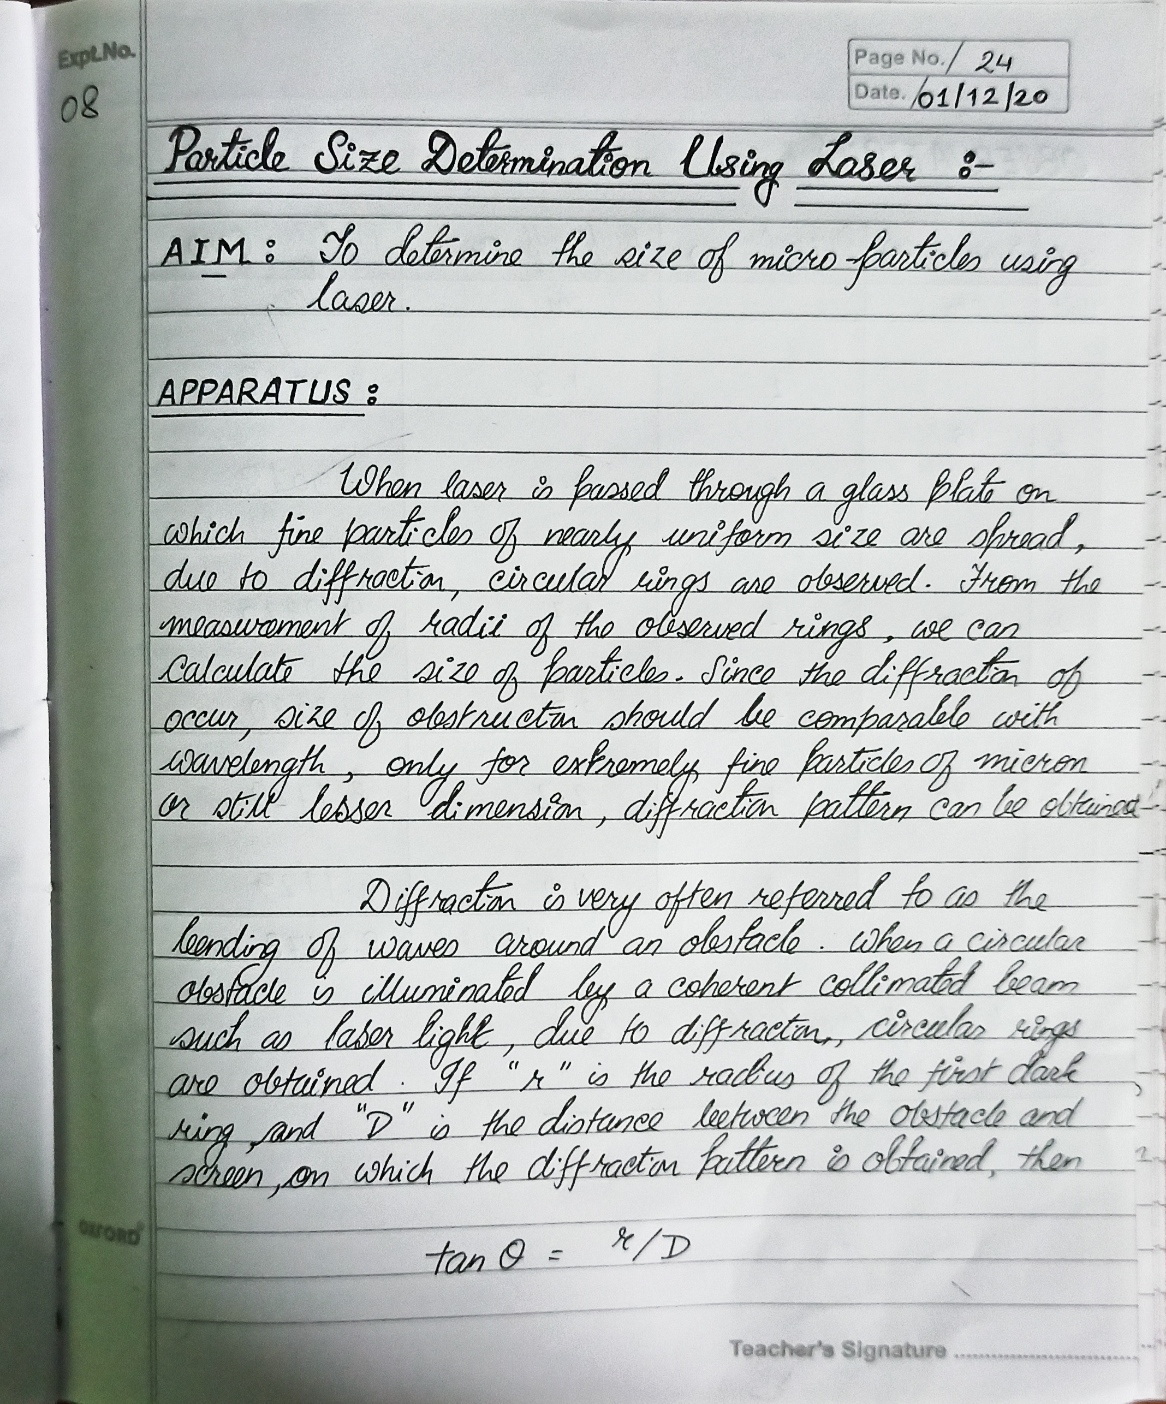 Expt.No.
08
Page No. 24
Date. 01/12/20
Particle Size Determination Using Laser :-
AIM : To determine the size of micro-particles using
laser.
APPARATUS :
When laser is passed through a glass plate on
which fine particles of nearly uniform size are spread,
due to diffraction, circular rings are observed. From the
measurement of radii of the observed rings, we can
calculate the size of particles. Since the diffraction of
occur, size of obstruction should be comparable with
wavelength, only for extremely fine particles of micron
or still lesser dimension, diffraction pattern can be obtained
Diffraction is very often referred to as the
bending of waves around an obstacle. When a circular
obstacle is illuminated by a coherent collimated beam
such as laser light, due to diffraction, circular rings
are obtained. If "r" is the radius of the first dark
ring, and "D" is the distance between the obstacle and
screen, on which the diffraction pattern is obtained, then
tan θ = r/D
OXFORD
Teacher's Signature